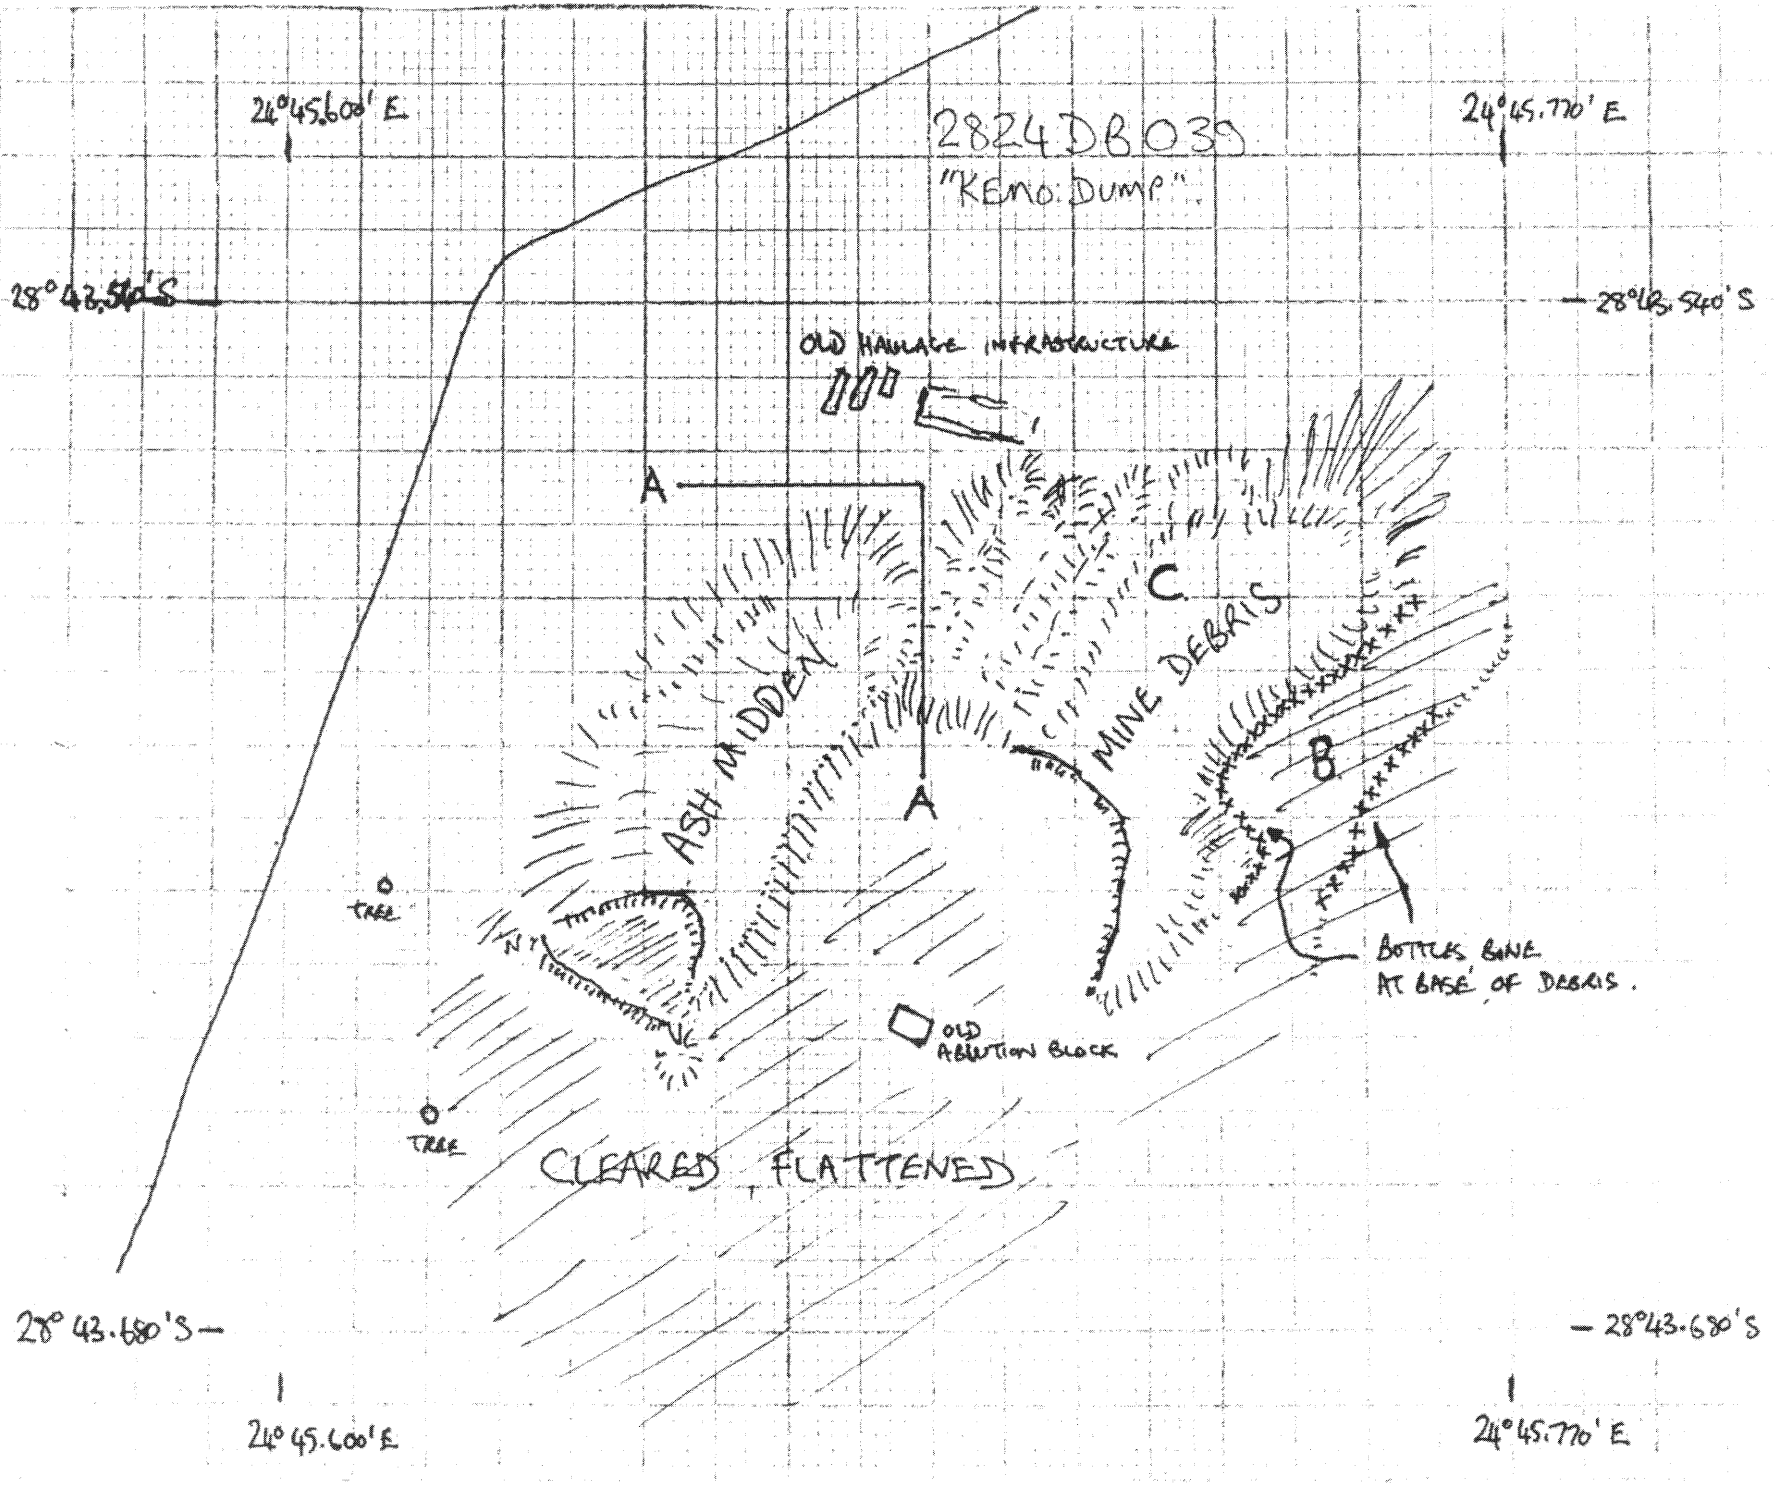 24°45.600' E
24°45.770' E
2824DB039
"KEMO DUMP".
28°43.540'S
28°43.540'S
OLD HAULAGE INFRASTRUCTURE
A
C
MINE DEBRIS
ASH MIDDEN
B
A
TREE
BOTTLES BONE
AT BASE OF DEBRIS.
OLD
ABLUTION BLOCK
TREE
CLEARED, FLATTENED
28°43.680'S
28°43.680'S
24°45.600'E
24°45.770' E